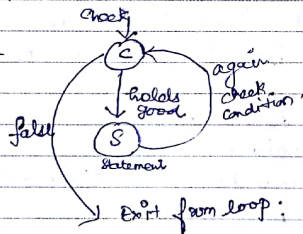 Check
C
again
check
condition
holds
good
false
S
statement
Exit from loop: